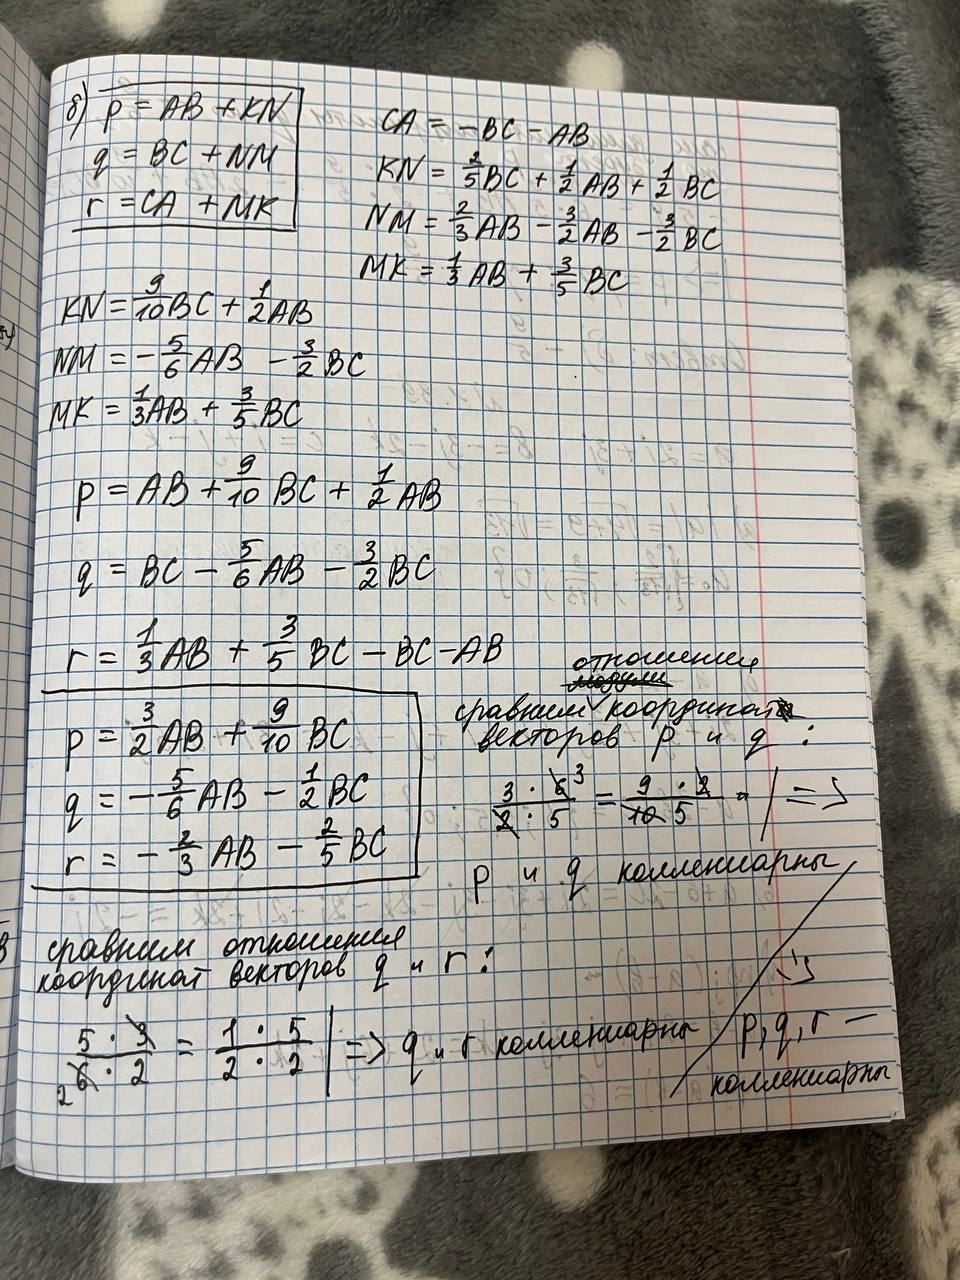 б) p = AB + KN
q = BC + NM
r = CA + MK
CA = -BC - AB
KN = 2/5 BC + 1/2 AB + 1/2 BC
NM = 2/3 AB - 3/2 AB - 3/2 BC
MK = 1/3 AB + 3/5 BC
KN = 9/10 BC + 1/2 AB
NM = - 5/6 AB - 3/2 BC
MK = 1/3 AB + 3/5 BC
p = AB + 9/10 BC + 1/2 AB
q = BC - 5/6 AB - 3/2 BC
r = 1/3 AB + 3/5 BC - BC - AB
p = 3/2 AB + 9/10 BC
q = - 5/6 AB - 1/2 BC
r = - 2/3 AB - 2/5 BC
отношения
сравним координат
векторов p и q :
3 · 6 3 / 2 · 5 = 9 · 2 / 10 5 | =>
p и q коллениарны
сравним отношения
координат векторов q и r :
5 · 3 / 2 6 · 2 = 1 · 5 / 2 · 2 | => q и r коллениарны
=>
p, q, r —
коллениарны